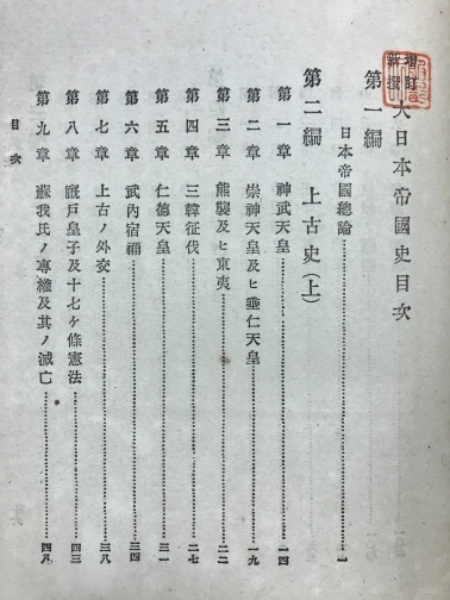 増訂
新撰
大日本帝國史目次
第一編
日本帝國總論…………一
第二編 上古史(上)
第一章 神武天皇…………一四
第二章 崇神天皇及ヒ垂仁天皇…………一九
第三章 熊襲及ヒ東夷…………二二
第四章 三韓征伐…………二七
第五章 仁德天皇…………三一
第六章 武內宿禰…………三四
第七章 上古ノ外交…………三八
第八章 廐戶皇子及十七ケ條憲法…………四三
第九章 蘇我氏ノ專權及其ノ滅亡…………四八
目次